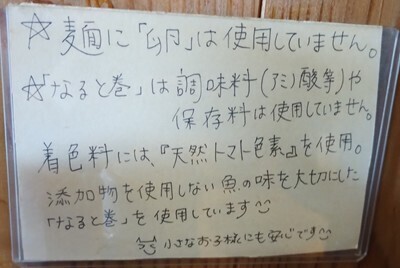 ☆麺に「卵」は使用していません。
☆「なると巻」は調味料(アミノ酸等)や
保存料は使用していません。
着色料には、『天然トマト色素』を使用。
添加物を使用しない魚の味を大切にした
「なると巻」を使用しています
小さなお子様にも安心です